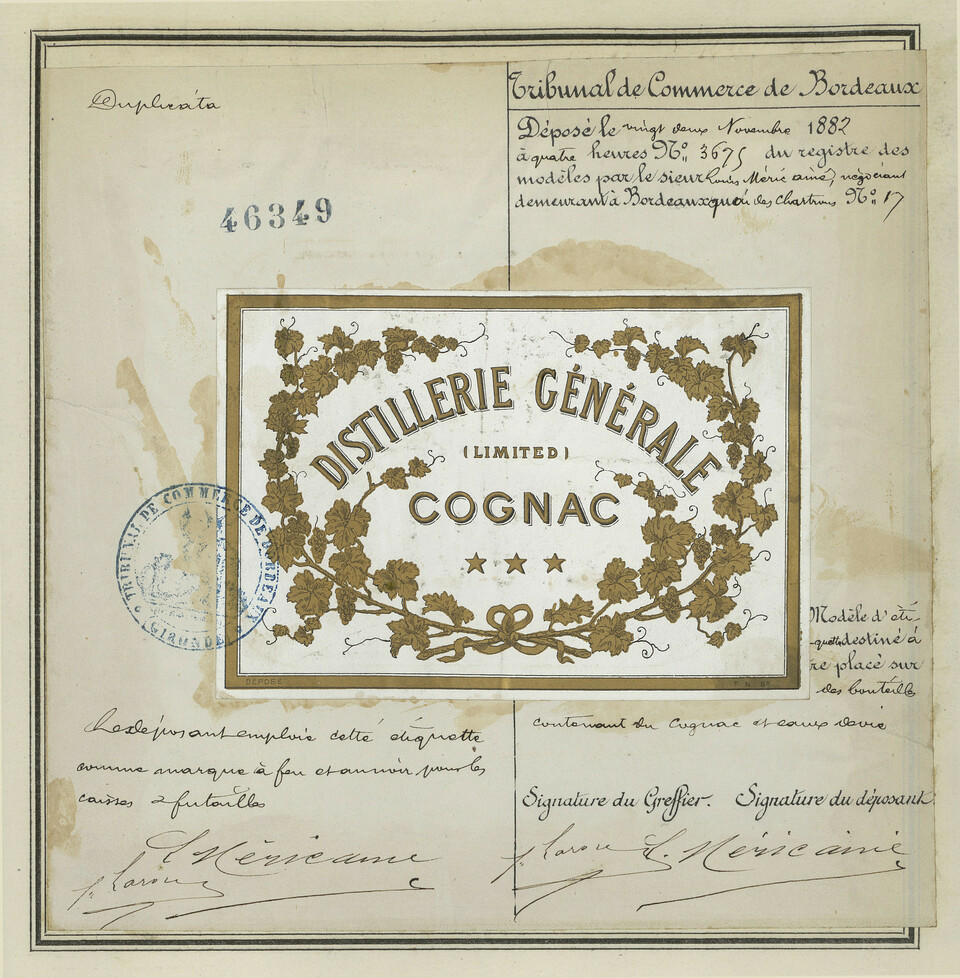 Duplicata
46349
Tribunal de Commerce de Bordeaux
Déposé le vingt deux Novembre 1882
à quatre heures No. 3675 du registre des
modèles par le sieur Louis Méric ainé, négociant
demeurant à Bordeaux quai des Chartrons No. 17
DISTILLERIE GÉNÉRALE
(LIMITED)
COGNAC
TRIBUNAL DE COMMERCE DE BORDEAUX
(GIRONDE)
DÉPOSÉ
Modèle d'éti-
quette destiné à
re placé sur
des bouteilles
contenant du Cognac et eaux de vie
Le déposant emploie cette étiquette
comme marque à feu et au noir pour les
caisses & futailles
Signature du Greffier. Signature du déposant
L. Méric ainé
L. Méric ainé